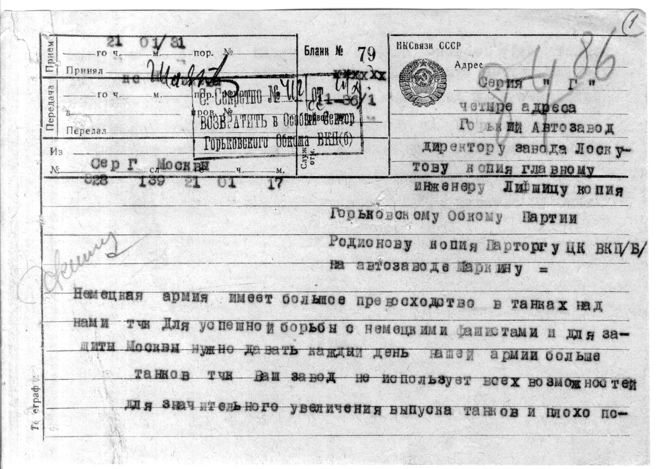 (1)
21 01/31
го ч. м. пор. №
Бланк № 79
НКСвязи СССР
86
Прием
Принял
Адрес
Серия "Г"
четыре адреса
Передача
го ч. м. пор. №
С. Секретно №
Горький Автозавод
в пров. №
ВОЗВРАТИТЬ в Особый Сектор
директору завода Лоску-
Передал
Горьковского Обкома ВКП(б)
тову копия главному
Из Сер Г Москвы
Служ. отм.
№ 828 сл 139 21 го 01 ч. 17 м.
инженеру Лифшицу копия
Горьковскому Обкому Партии
Родионову копия Парторгу ЦК ВКП/Б/
на автозаводе Маркину =
Немецкая армия имеет большое превосходство в танках над
нами тчк Для успешной борьбы с немецкими фашистами и для за-
щиты Москвы нужно давать каждый день нашей армии больше
танков тчк Ваш завод не использует всех возможностей
для значительного увеличения выпуска танков и плохо по-